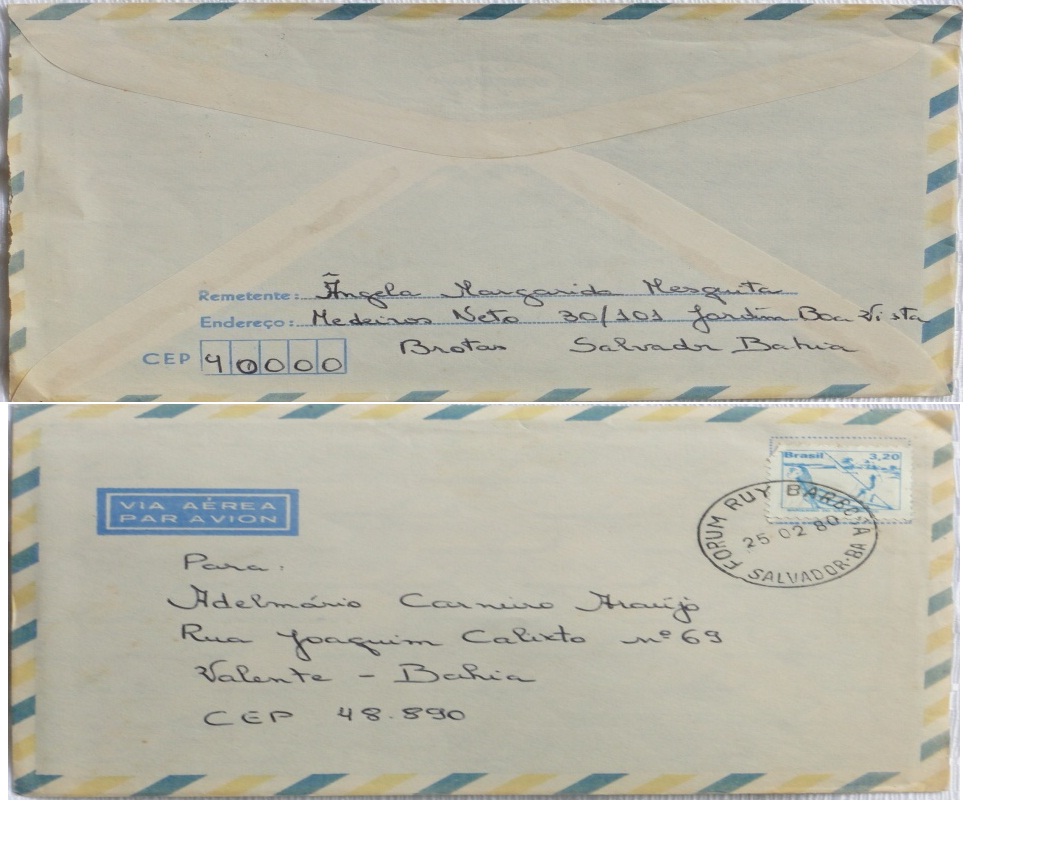 Remetente: Ângela Margarida Mesquita
Endereço: Medeiros Neto 30/101 Jardim Boa Vista
CEP 40000 Brotas Salvador Bahia
Brasil 3,20
FORUM RUY BARBOSA
25 02 80
SALVADOR-BA
VIA AÉREA
PAR AVION
Para:
Adelmário Carneiro Araújo
Rua Joaquim Calixto nº 69
Valente - Bahia
CEP 48.890